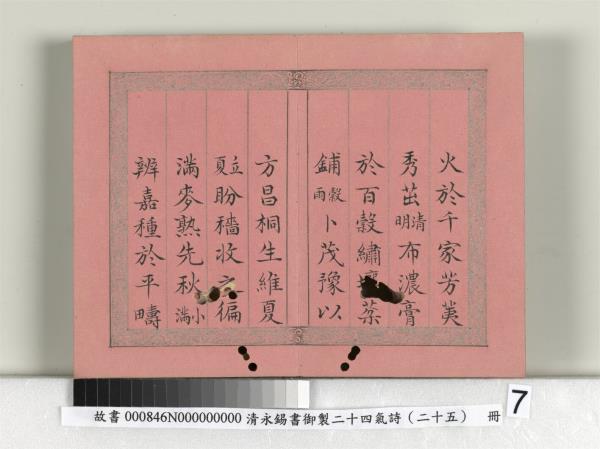 火於千家芳荑
秀茁清明布濃膏
於百穀繡棻
鋪穀雨卜茂豫以
方昌桐生維夏
立夏盼穡收徧
滿麥熟先秋小滿
辨嘉種於平疇
故書 000846N000000000 清永錫書御製二十四氣詩（二十五） 冊
7